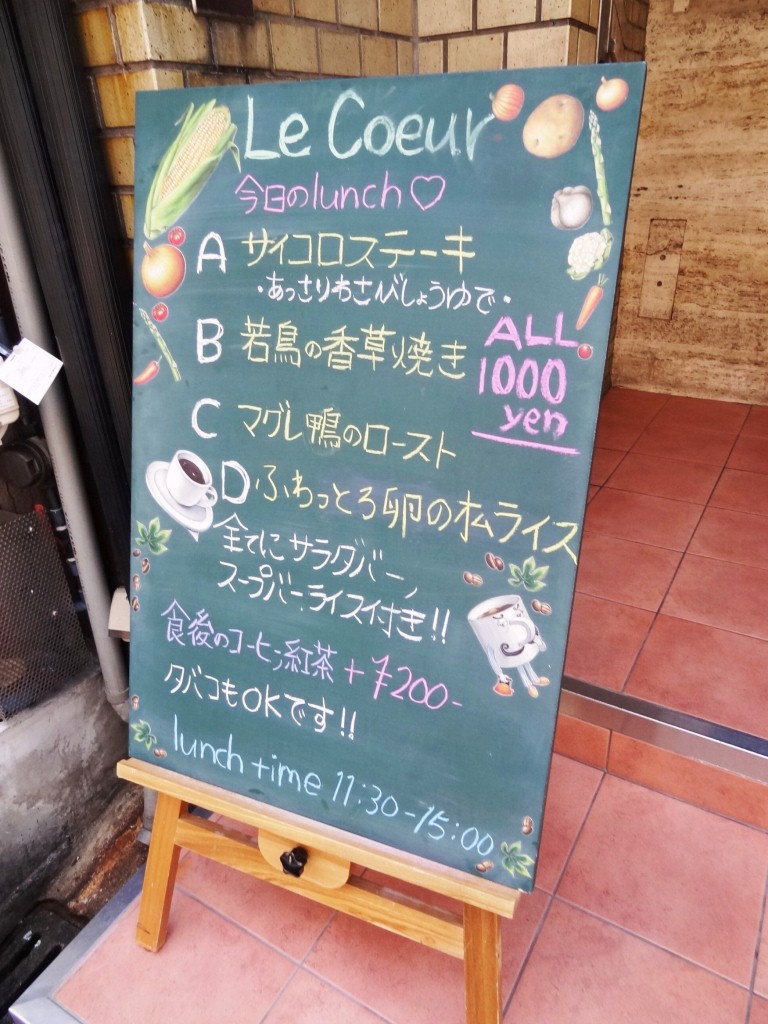 Le Coeur
今日のlunch♡
A サイコロステーキ
・あっさりわさびしょうゆで・
B 若鳥の香草焼き
ALL
1000
yen
C マグレ鴨のロースト
D ふわっとろ卵のオムライス
全てにサラダバー、
スープバー、ライス付き!!
食後のコーヒー、紅茶 + ¥200-
タバコもOKです!!
lunch time 11:30-15:00